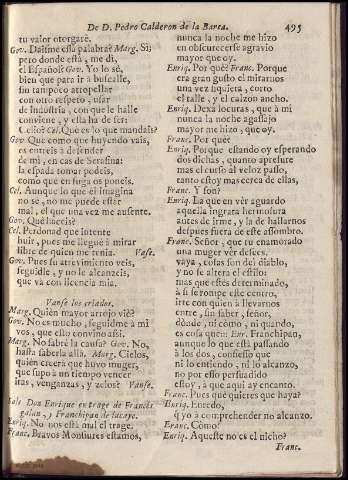 De D. Pedro Calderon de la Barca. 495
tu valor otorgarè.
Gov. Daisme essa palabra? Marg. Sì;
pero donde està, me dì,
el Español? Gov. Yo lo sè,
bien que para ir à buscalle,
sin tampoco atropellar
con otro respeto, usar
de industria, con que le halle
conviene, y esta ha de ser:
Celio? Cel. Què es lo que mandais?
Gov. Que como que huyendo vais,
os entreis à defender
de mì, en casa de Serafina:
la espada tomar podeis,
como que en fuga os poneis.
Cel. Aunque lo que èl imagina
no sè, no me puede estar
mal, el que una vez me ausente.
Gov. Què haceis?
Cel. Perdonad que intente
huir, pues me lleguè à mirar
libre de quien me tenia. Vase.
Gov. Pues su atrevimiento veis,
seguidle, y no le alcanceis,
que va con licencia mia.
Vanse los criados.
Marg. Quièn mayor arrojo viò?
Gov. No es mucho, seguidme à mì
vos, que esto convino assi.
Marg. No sabrè la causa? Gov. No,
hasta saberla allà. Marg. Cielos,
quièn creerà que huvo muger,
que supo à un tiempo vencer
iras, venganzas, y zelos? Vase.
Sale Don Enrique en trage de Franchi-
galan, y Franchipan de lacayo.
Enriq. No nos està mal el trage.
Franc. Bravos Monsiures estamos,
nunca la noche me hizo
en obscurecerse agravio
mayor que oy.
Enriq. Por què? Franc. Porque
era gran gusto el mirarnos
una vez siquiera, corto
el talle, y el calzon ancho.
Enriq. Dexa locuras, que à mì
nunca la noche agassajo
mayor me hizo, que oy.
Franc. Por què?
Enriq. Porque estando oy esperando
dos dichas, quanto apresure
mas el curso al veloz passo,
tanto estoy mas cerca de ellas,
Franc. Y son?
Enriq. La que en vèr aguardo
aquella ingrata hermosura
antes de irme, y la de hallarnos
despues fuera de este assombro.
Franc. Señor, que tu enamorado
una muger vèr desees,
vaya, cosas son del diablo,
y no se altera el estilo:
mas que estès determinado,
à si se rompe este centro,
irte con quien à llevarnos
entre, sin saber, señor,
dònde, ni còmo, ni quando,
es cosa que:: Enr. Franchipan,
aunque lo que està passando
à los dos, confiesso que
ni lo entiendo, ni lo alcanzo,
no por esso persuadido
estoy, à que aqui ay encanto.
Franc. Pues què quieres que haya?
Enriq. Enredo,
q yo à comprehender no alcanzo.
Franc. Còmo?
Enriq. Aqueste no es el nicho?
Franc.